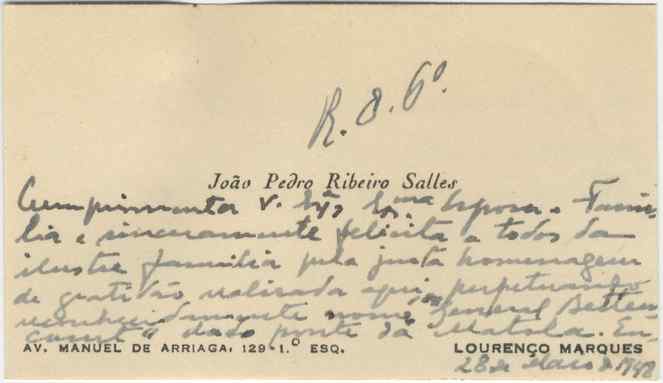 R. 8. 6º.
João Pedro Ribeiro Salles
Cumprimenta V. Exª Exma Esposa e Famí-
lia e sinceramente felicita a todos da
ilustre familia pela justa homenagem
de gratidão realisada aqui, perpetuando
reconhecidamente nome General Betten
court" dado ponte da Matola. En-
AV. MANUEL DE ARRIAGA, 129-1.º ESQ. LOURENÇO MARQUES
28 de Março 1948